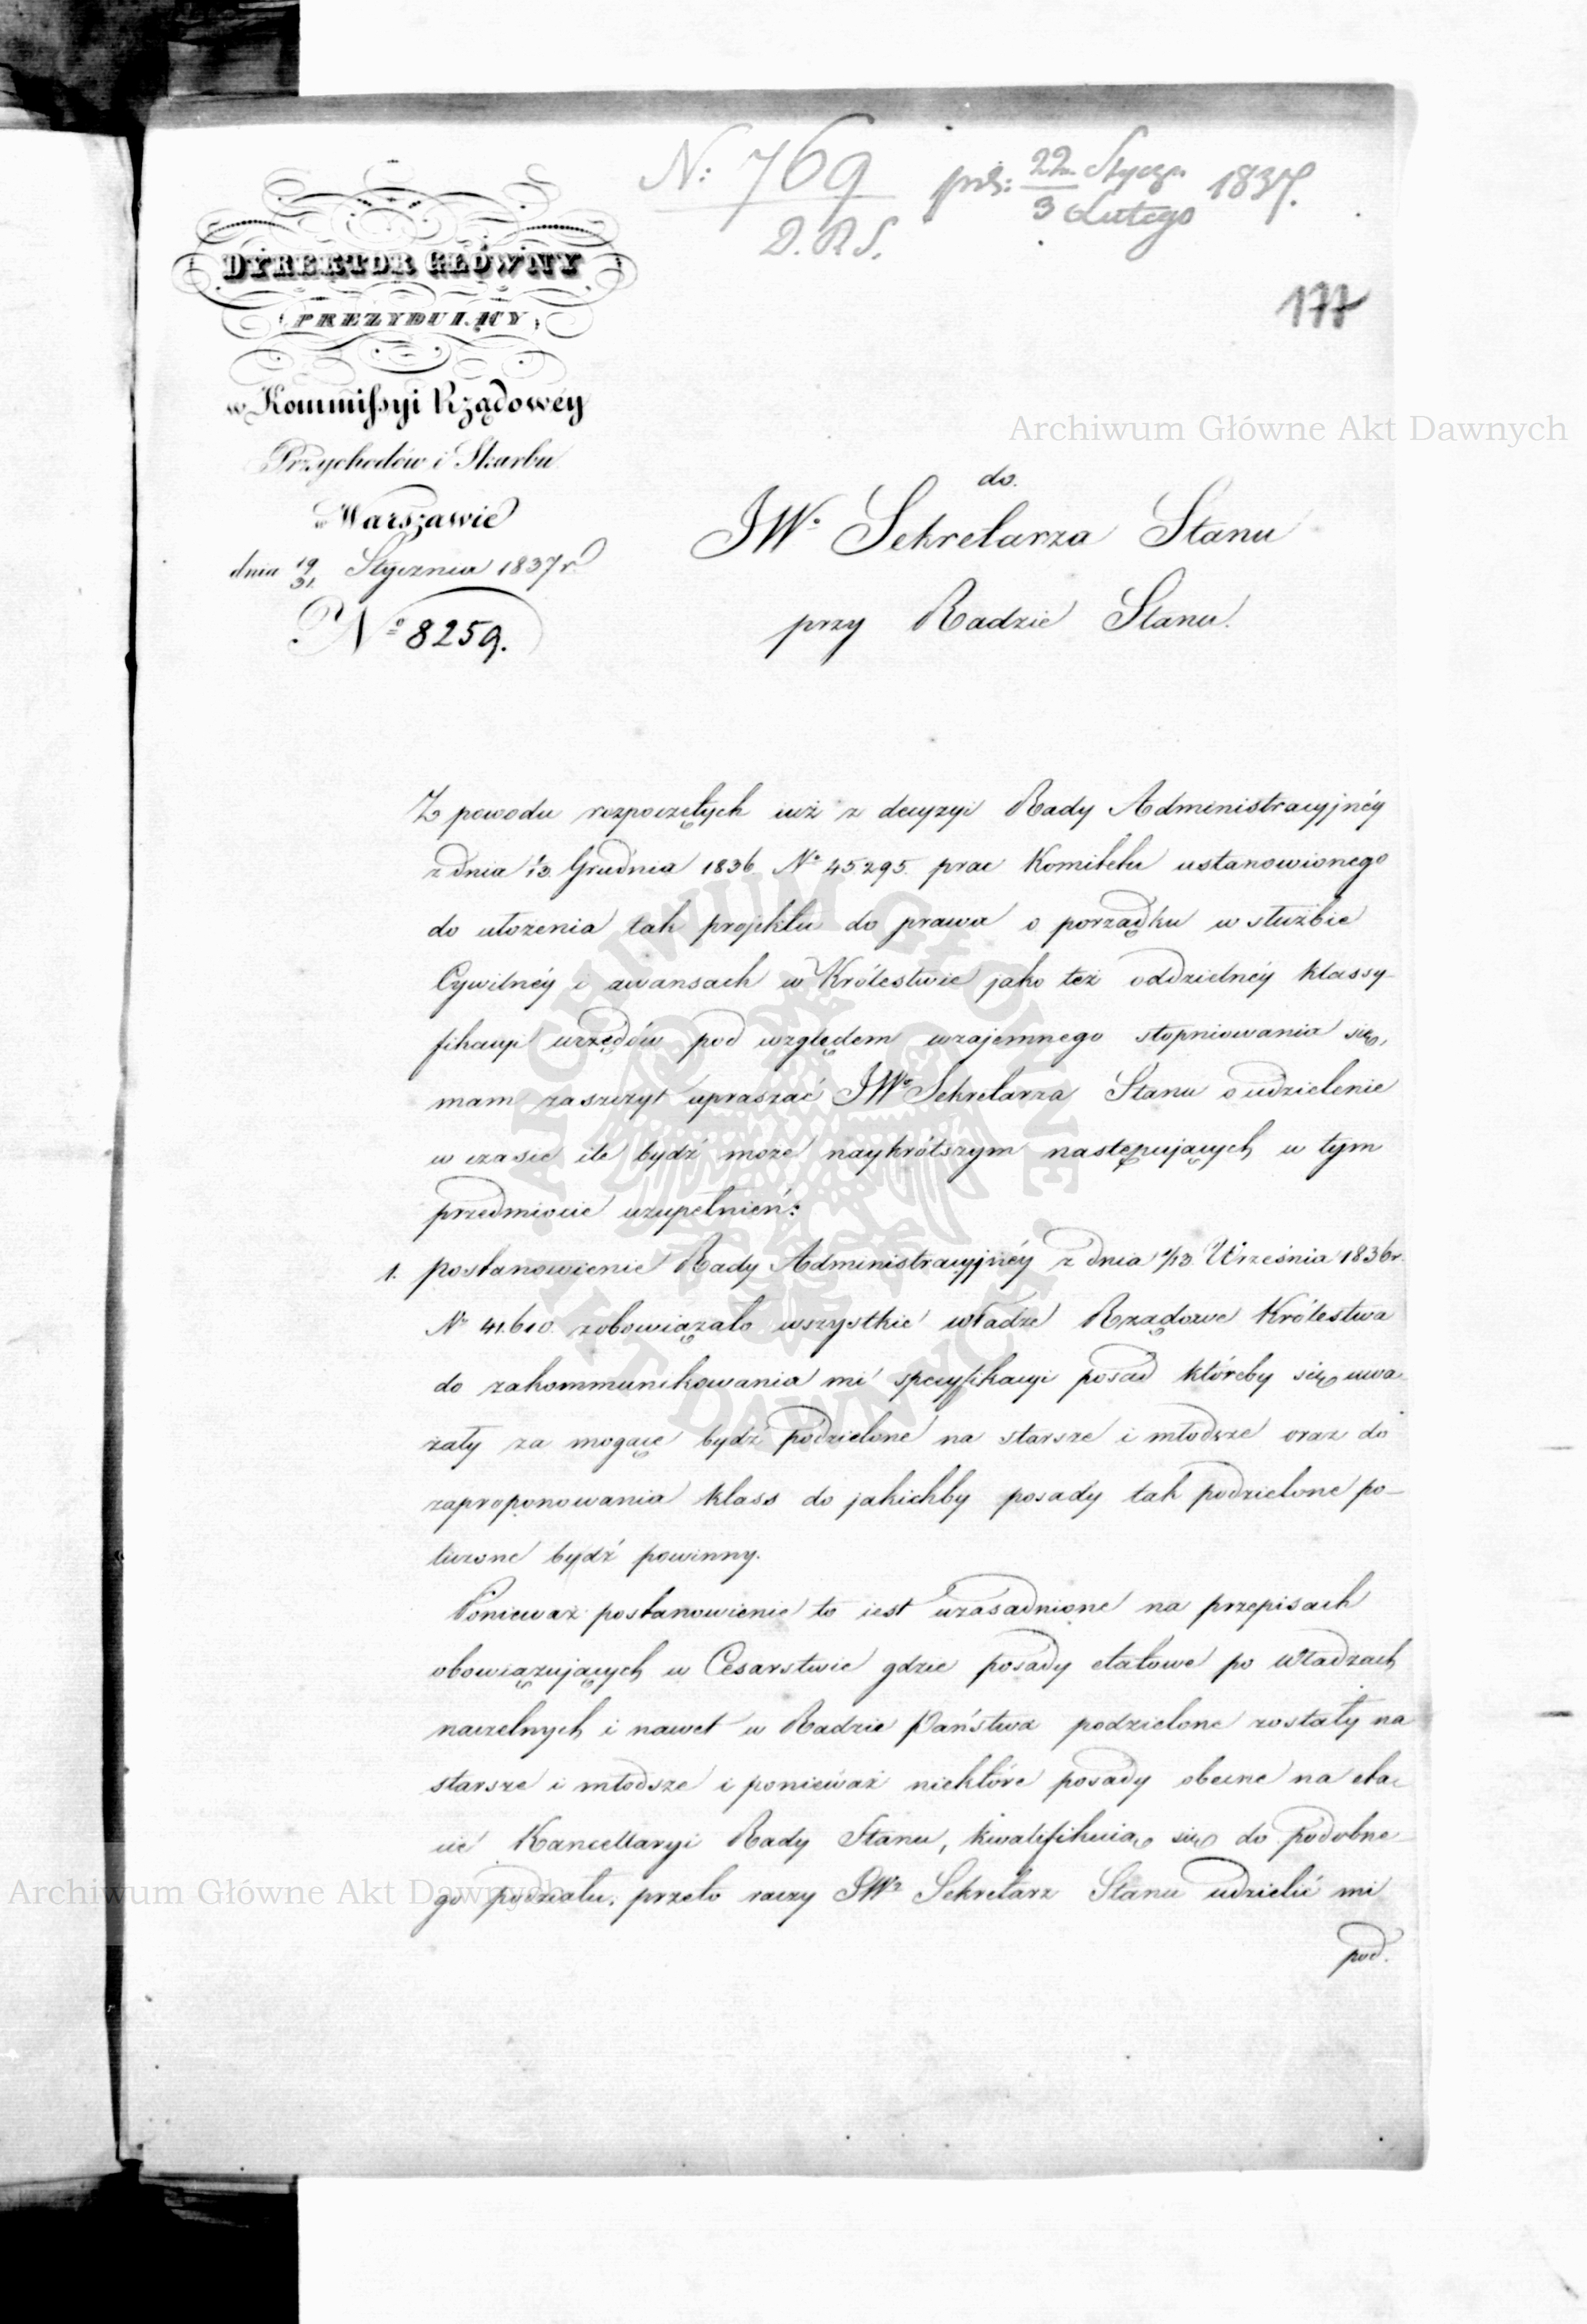 N: 769
D. R. S.
pół: 22 Stycz. 1837.
3 Lutego
177
DYREKTOR GŁÓWNY
PREZYDUIĄCY
w Kommissyi Rządowéy
Przychodów i Skarbu
w Warszawie
dnia 19/31 Stycznia 1837 r.
Nº 8259.
do.
JWº Sekretarza Stanu
przy Radzie Stanu.
Z powodu rozpoczętych iuż z decyzyi Rady Administracyjnéy
z dnia 1/13 Grudnia 1836 Nº 45295. prac Komitetu ustanowionego
do ułożenia tak projektu do prawa o porządku w służbie
Cywilnéy i awansach w Królestwie jako też oddzielnéy klassy-
fikacyi urzędów pod względem wzajemnego stopniowania się,
mam zaszczyt upraszać JWº Sekretarza Stanu o udzielenie
w czasie ile bydź może naykrótszym następujących w tym
przedmiocie uzupełnień:
1. postanowienie Rady Administracyjnéy z dnia 1/13 Września 1836 r.
Nº 41.610. zobowiązało wszystkie władze Rządowe Królestwa
do zakommunikowania mi specyfikacyi posad któreby się uwa
żały za mogące bydź podzielone na starsze i młodsze oraz do
zaproponowania klass do jakichby posady tak podzielone po-
liczone bydź powinny.
Ponieważ postanowienie to iest uzasadnione na przepisach
obowiązujących w Cesarstwie gdzie posady etatowe po Władzach
naczelnych i nawet w Radzie Państwa podzielone zostały na
starsze i młodsze i ponieważ niektóre posady obecne na eta-
cie Kancellaryi Rady Stanu, kwalifikuią się do podobne-
go podziału, przeto raczy JWº Sekretarz Stanu udzielić mi
pod.
Archiwum Główne Akt Dawnych
Archiwum Główne Akt Dawnych
ARCHIWUM GŁÓWNE
AKT DAWNYCH